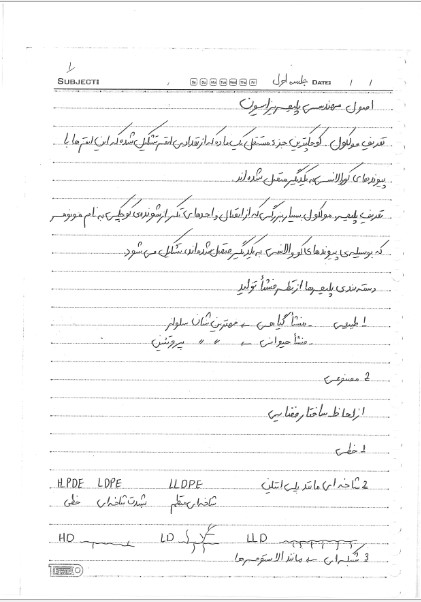 1
SUBJECT: Sa Su Mo Tu We Th Fr جلسه اول DATE: / /
اصول مهندسی پلیمریزاسیون
تعریف مولکول - کوچکترین جزء مستقل یک ماده که از تعدادی اتم تشکیل شده که این اتم‌ها با
پیوندهای کووالانسی به یکدیگر متصل شده‌اند
تعریف پلیمر مولکول بسیار بزرگی که از اتصال واحدهای تکرار شونده‌ی کوچکی به نام مونومر
که بوسیله‌ی پیوندهای کووالانسی به یکدیگر متصل شده‌اند، تشکیل می‌شود
دسته‌بندی پلیمرها از نظر منشأ تولید
1 طبیعی - منشا گیاهی ← مهمترین‌شان سلولز
- منشا حیوانی ← " " پروتئین
2 مصنوعی
از لحاظ ساختار فضایی
1 خطی
2 شاخه‌ای مانند پلی اتیلن LLDPE LDPE H.PDE
شاخه‌ای منظم بشدت شاخه‌ای خطی
HD LD LLD
3 شبکه‌ای ← مانند الاستومرها